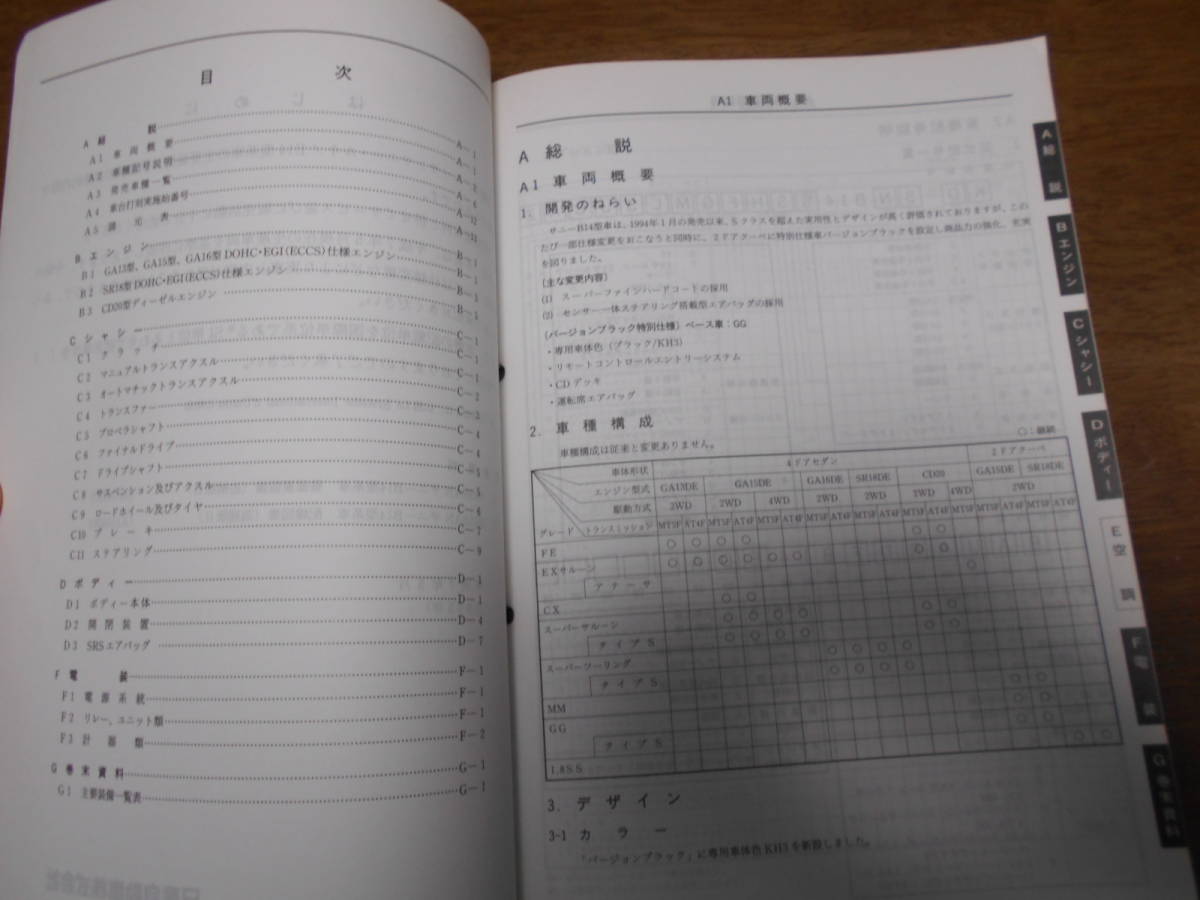 目 次
A 総 説 A-1
A1 車両概要 A-1
A2 車種記号説明
A3 発売車種一覧
A4 車台打刻実施始番号
A5 諸元表
Bエンジン B-1
B1 GA13型、GA15型、GA16型DOHC・EGI(ECCS)仕様エンジン B-1
B2 SR18型DOHC・EGI(ECCS)仕様エンジン
B3 CD20型ディーゼルエンジン
Cシャシー C-1
C1 クラッチ C-1
C2 マニュアルトランスアクスル C-1
C3 オートマチックトランスアクスル C-2
C4 トランスファー C-3
C5 プロペラシャフト C-4
C6 ファイナルドライブ C-4
C7 ドライブシャフト
C8 サスペンション及びアクスル C-5
C9 ロードホイール及びタイヤ C-6
C10 ブレーキ C-7
C11 ステアリング C-9
Dボディー D-1
D1 ボディー本体 D-1
D2 開閉装置 D-4
D3 SRSエアバッグ D-7
F 電 装 F-1
F1 電源系統 F-1
F2 リレー、ユニット類 F-1
F3 計器類 F-2
G 巻末資料 G-1
G1 主要装備一覧表 G-1
A1 車両概要
A 総 説
A1 車両概要
1. 開発のねらい
サニーB14型車は、1994年1月の発売以来、5クラスを超えた実用性とデザインが高く評価されておりますが、この
たび一部仕様変更をおこなうと同時に、2ドアクーペに特別仕様車バージョンブラックを設定し商品力の強化、充実
を図りました。
(主な変更内容)
(1) スーパーファインハードコートの採用
(2) センサー一体ステアリング搭載型エアバッグの採用
(バージョンブラック特別仕様) ベース車:GG
・専用車体色(ブラック/KH3)
・リモートコントロールエントリーシステム
・CDデッキ
・運転席エアバッグ
2. 車種構成
車種構成は従来と変更ありません。
○:継続
車体形状 4ドアセダン 2ドアクーペ
エンジン型式 GA13DE GA15DE GA16DE SR18DE CD20 GA15DE SR18DE
駆動方式 2WD 2WD 4WD 2WD 2WD 2WD 4WD 2WD
グレード トランスミッション MT5F AT4F MT5F AT4F MT5F AT4F MT5F AT4F MT5F AT4F MT5F AT4F MT5F MT5F AT4F MT5F AT4F
FE ○ ○ ○ ○ ○ ○
EXサルーン ○ ○ ○ ○ ○ ○ ○ ○
アテーサ ○
CX ○ ○
スーパーサルーン ○ ○ ○ ○ ○ ○
タイプS ○ ○ ○ ○ ○ ○
スーパーツーリング ○ ○ ○ ○
タイプS ○ ○ ○ ○
MM ○ ○
GG ○ ○
タイプS ○ ○
1.8SS ○ ○
3. デザイン
3-1 カラー
「バージョンブラック」に専用車体色KH3を新設しました。
A総説
Bエンジン
Cシャシー
Dボディー
E空調
F電装
G巻末資料